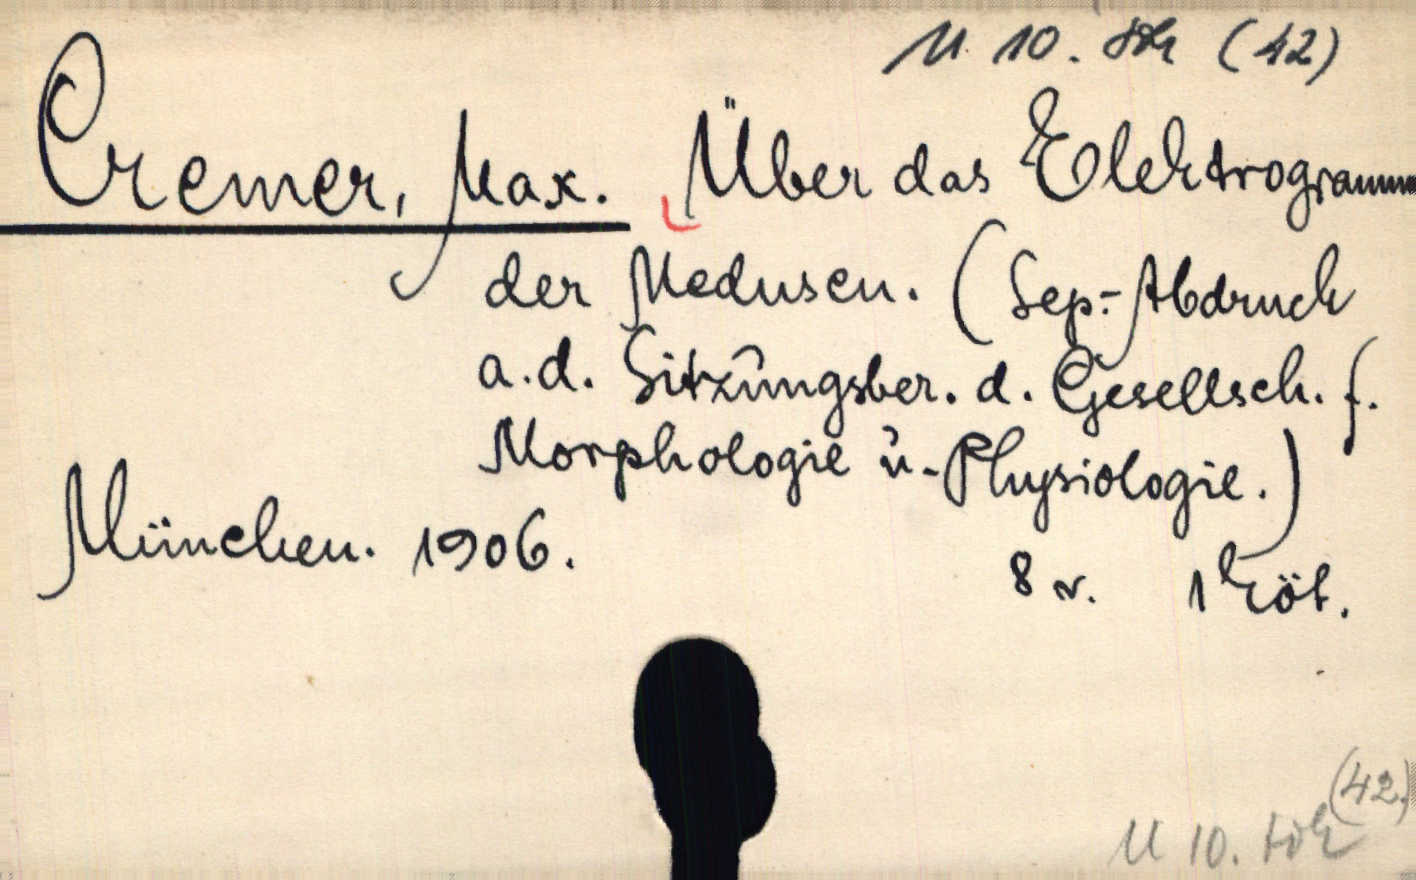 U 10. köt (42)
Cremer, Max. Über das Elektrogramm
der Medusen. (Sep.-Abdruck
a.d. Sitzungsber. d. Gesellsch. f.
Morphologie u. Physiologie.)
München. 1906.
8 r. 1 köt.
(42)
U 10. köt